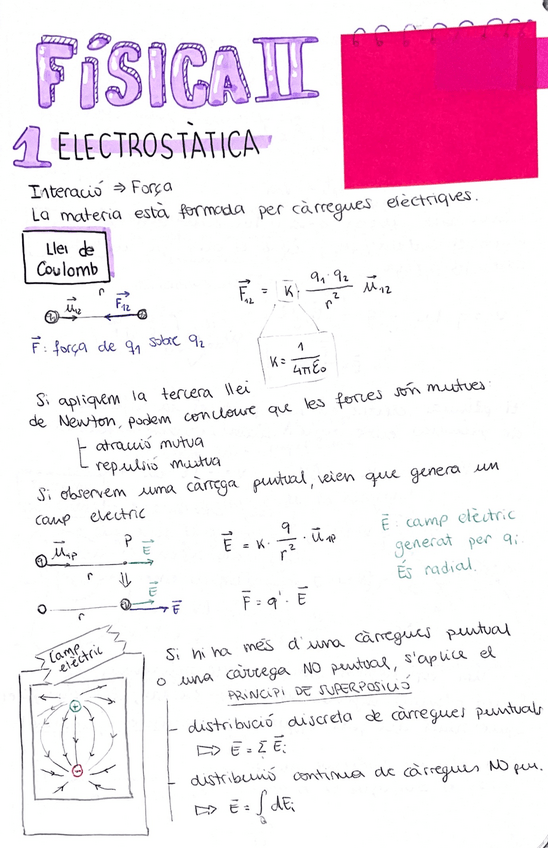 FÍSICA II
1 ELECTROSTÀTICA
Interació ⇒ Força
La materia està formada per càrregues elèctriques.
Llei de
Coulomb
r
μ⃗₁₂ F⃗₁₂
F⃗₁₂ = K · q₁·q₂ / r² μ⃗₁₂
F⃗: força de q₁ sobre q₂
K = 1 / 4πε₀
Si apliquem la tercera llei
de Newton, podem concloure que les forces són mutues:
atracció mutua
repulsió mutua
Si observem una càrrega puntual, veien que genera un
camp electric
μ⃗₁p P E⃗
r
E⃗ = K · q / r² · μ⃗₁p
E⃗: camp elèctric
generat per qᵢ.
És radial.
E⃗
r E⃗
F⃗ = q' · E⃗
Camp
elèctric
+
-
Si hi ha més d'una càrregues puntual
o una càrrega NO puntual, s'aplica el
PRINCIPI DE SUPERPOSICIÓ
distribució discreta de càrregues puntuals
⇒ E⃗ = Σ E⃗ᵢ
distribució continua de càrregues NO pun.
⇒ E⃗ = ∫ dEᵢ